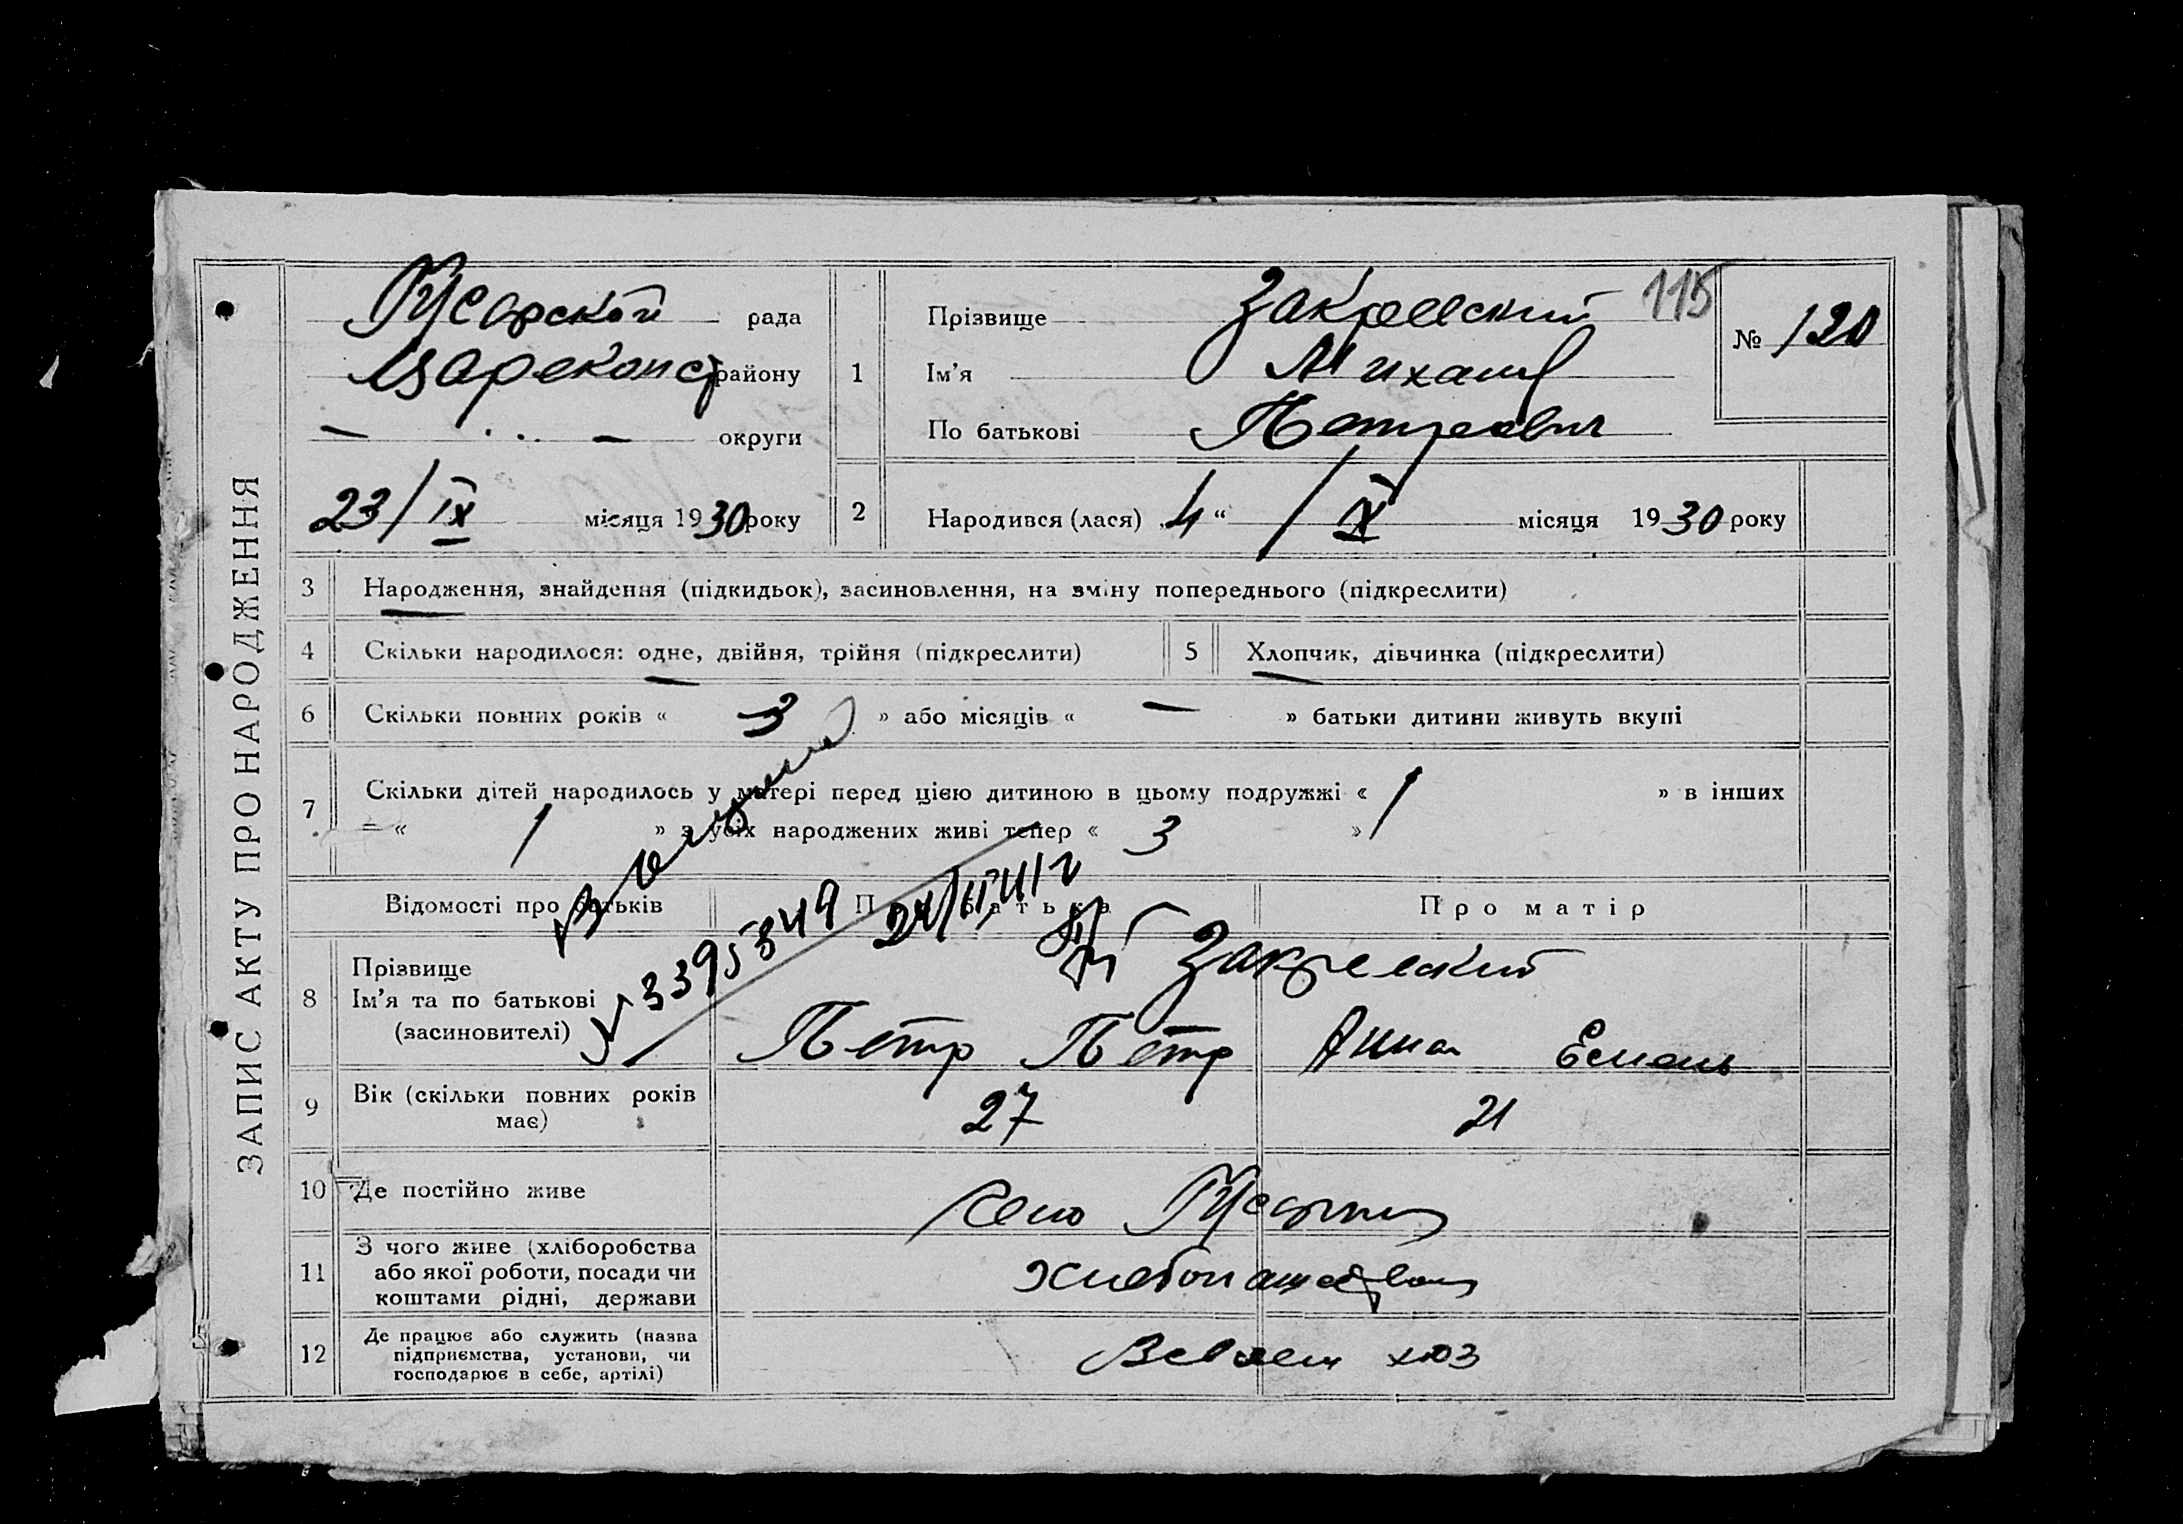 ЗАПИС АКТУ ПРО НАРОДЖЕННЯ
Русарской рада
Цареконст району
— — округи
23/IX місяця 1930 року
1 Прізвище Закревский
Ім'я Михаил
По батькові Петрович
115
№ 120
2 Народився (лася) 4 “ / X місяця 1930 року
3 Народження, знайдення (підкидьок), засиновлення, на зміну попереднього (підкреслити)
4 Скільки народилося: одне, двійня, трійня (підкреслити)
5 Хлопчик, дівчинка (підкреслити)
6 Скільки повних років « 3 » або місяців « — » батьки дитини живуть вкупі
7 Скільки дітей народилось у матері перед цією дитиною в цьому подружжі « / » в інших
— « / » з усіх народжених живі тепер « 3 » /
3395849
24/II 41 г
Відомості про батьків
Про батька
Про матір
8 Прізвище
Ім'я та по батькові
(засиновителі)
Закревский
Петр Петр Анна Емель
9 Вік (скільки повних років
має)
27 21
10 Де постійно живе
село
11 З чого живе (хліборобства
або якої роботи, посади чи
коштами рідні, держави
Хлебопашество
12 Де працює або служить (назва
підприємства, установи, чи
господарює в себе, артілі)
В своем хоз